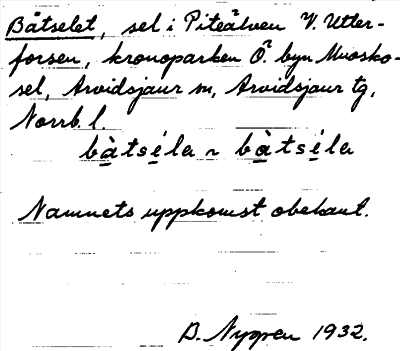 Båtselet, sel i Piteälven V. Utter-
forsen, kronoparken Ö. byn Muosko-
sel, Arvidsjaur sn, Arvidsjaur tg,
Norrb. l.
bàtséla ~ bàtséla
Namnets uppkomst obekant.
B. Nygren 1932.